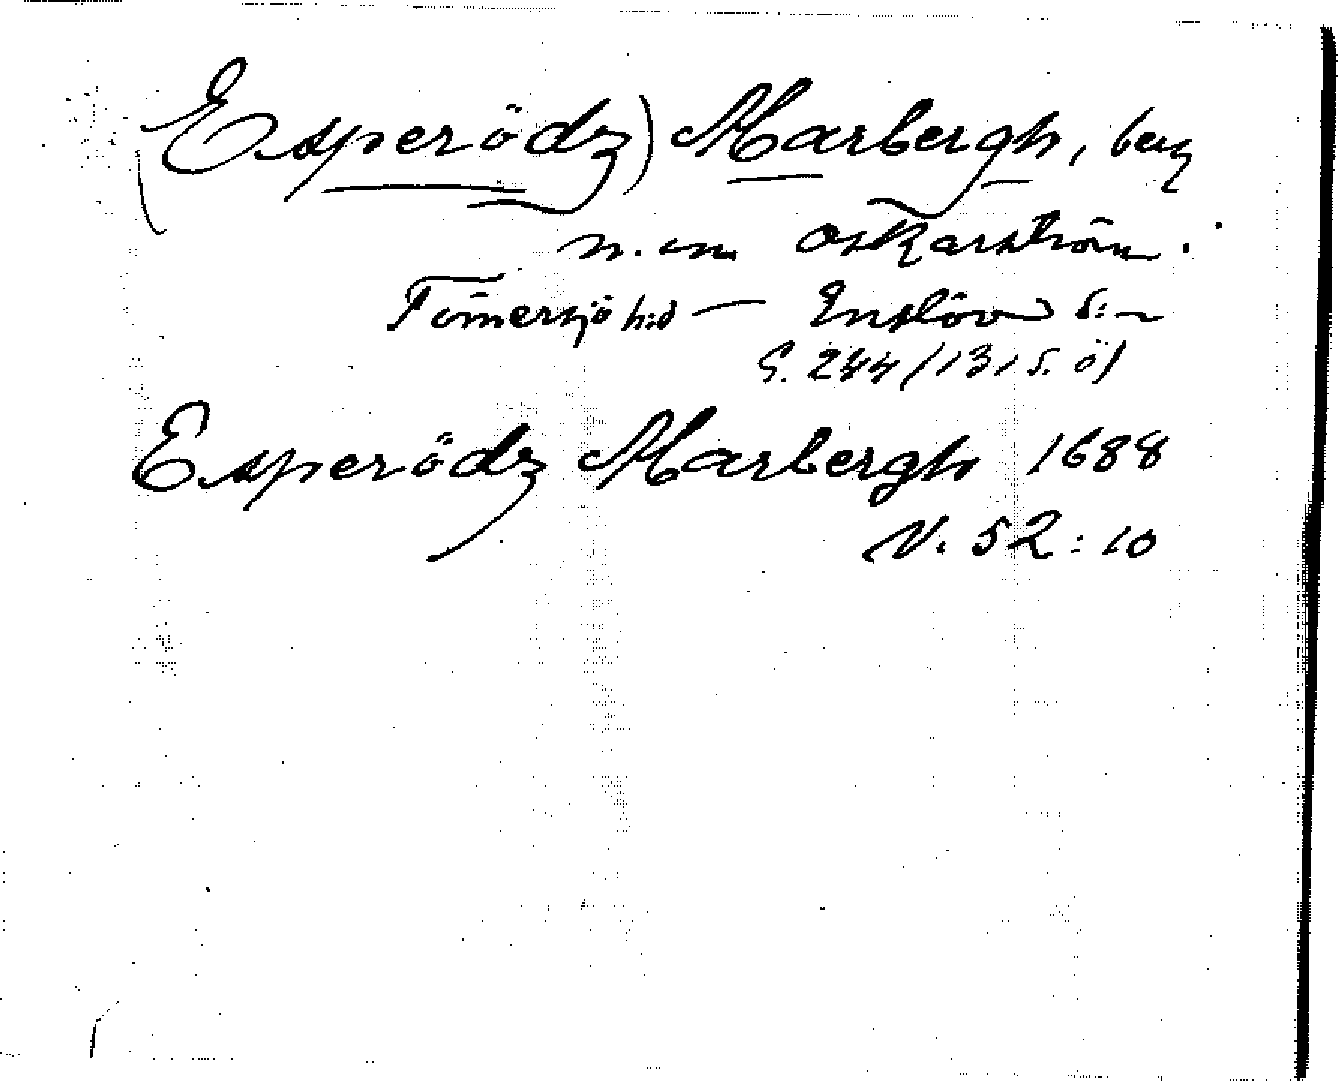 (Esperödz) Marbergh, berg
n. om Oskarström.
Tönnersjö h:d — Enslöv s:n
G. 244/1315. öl
Esperödz Marbergh 1688
N. 52:10